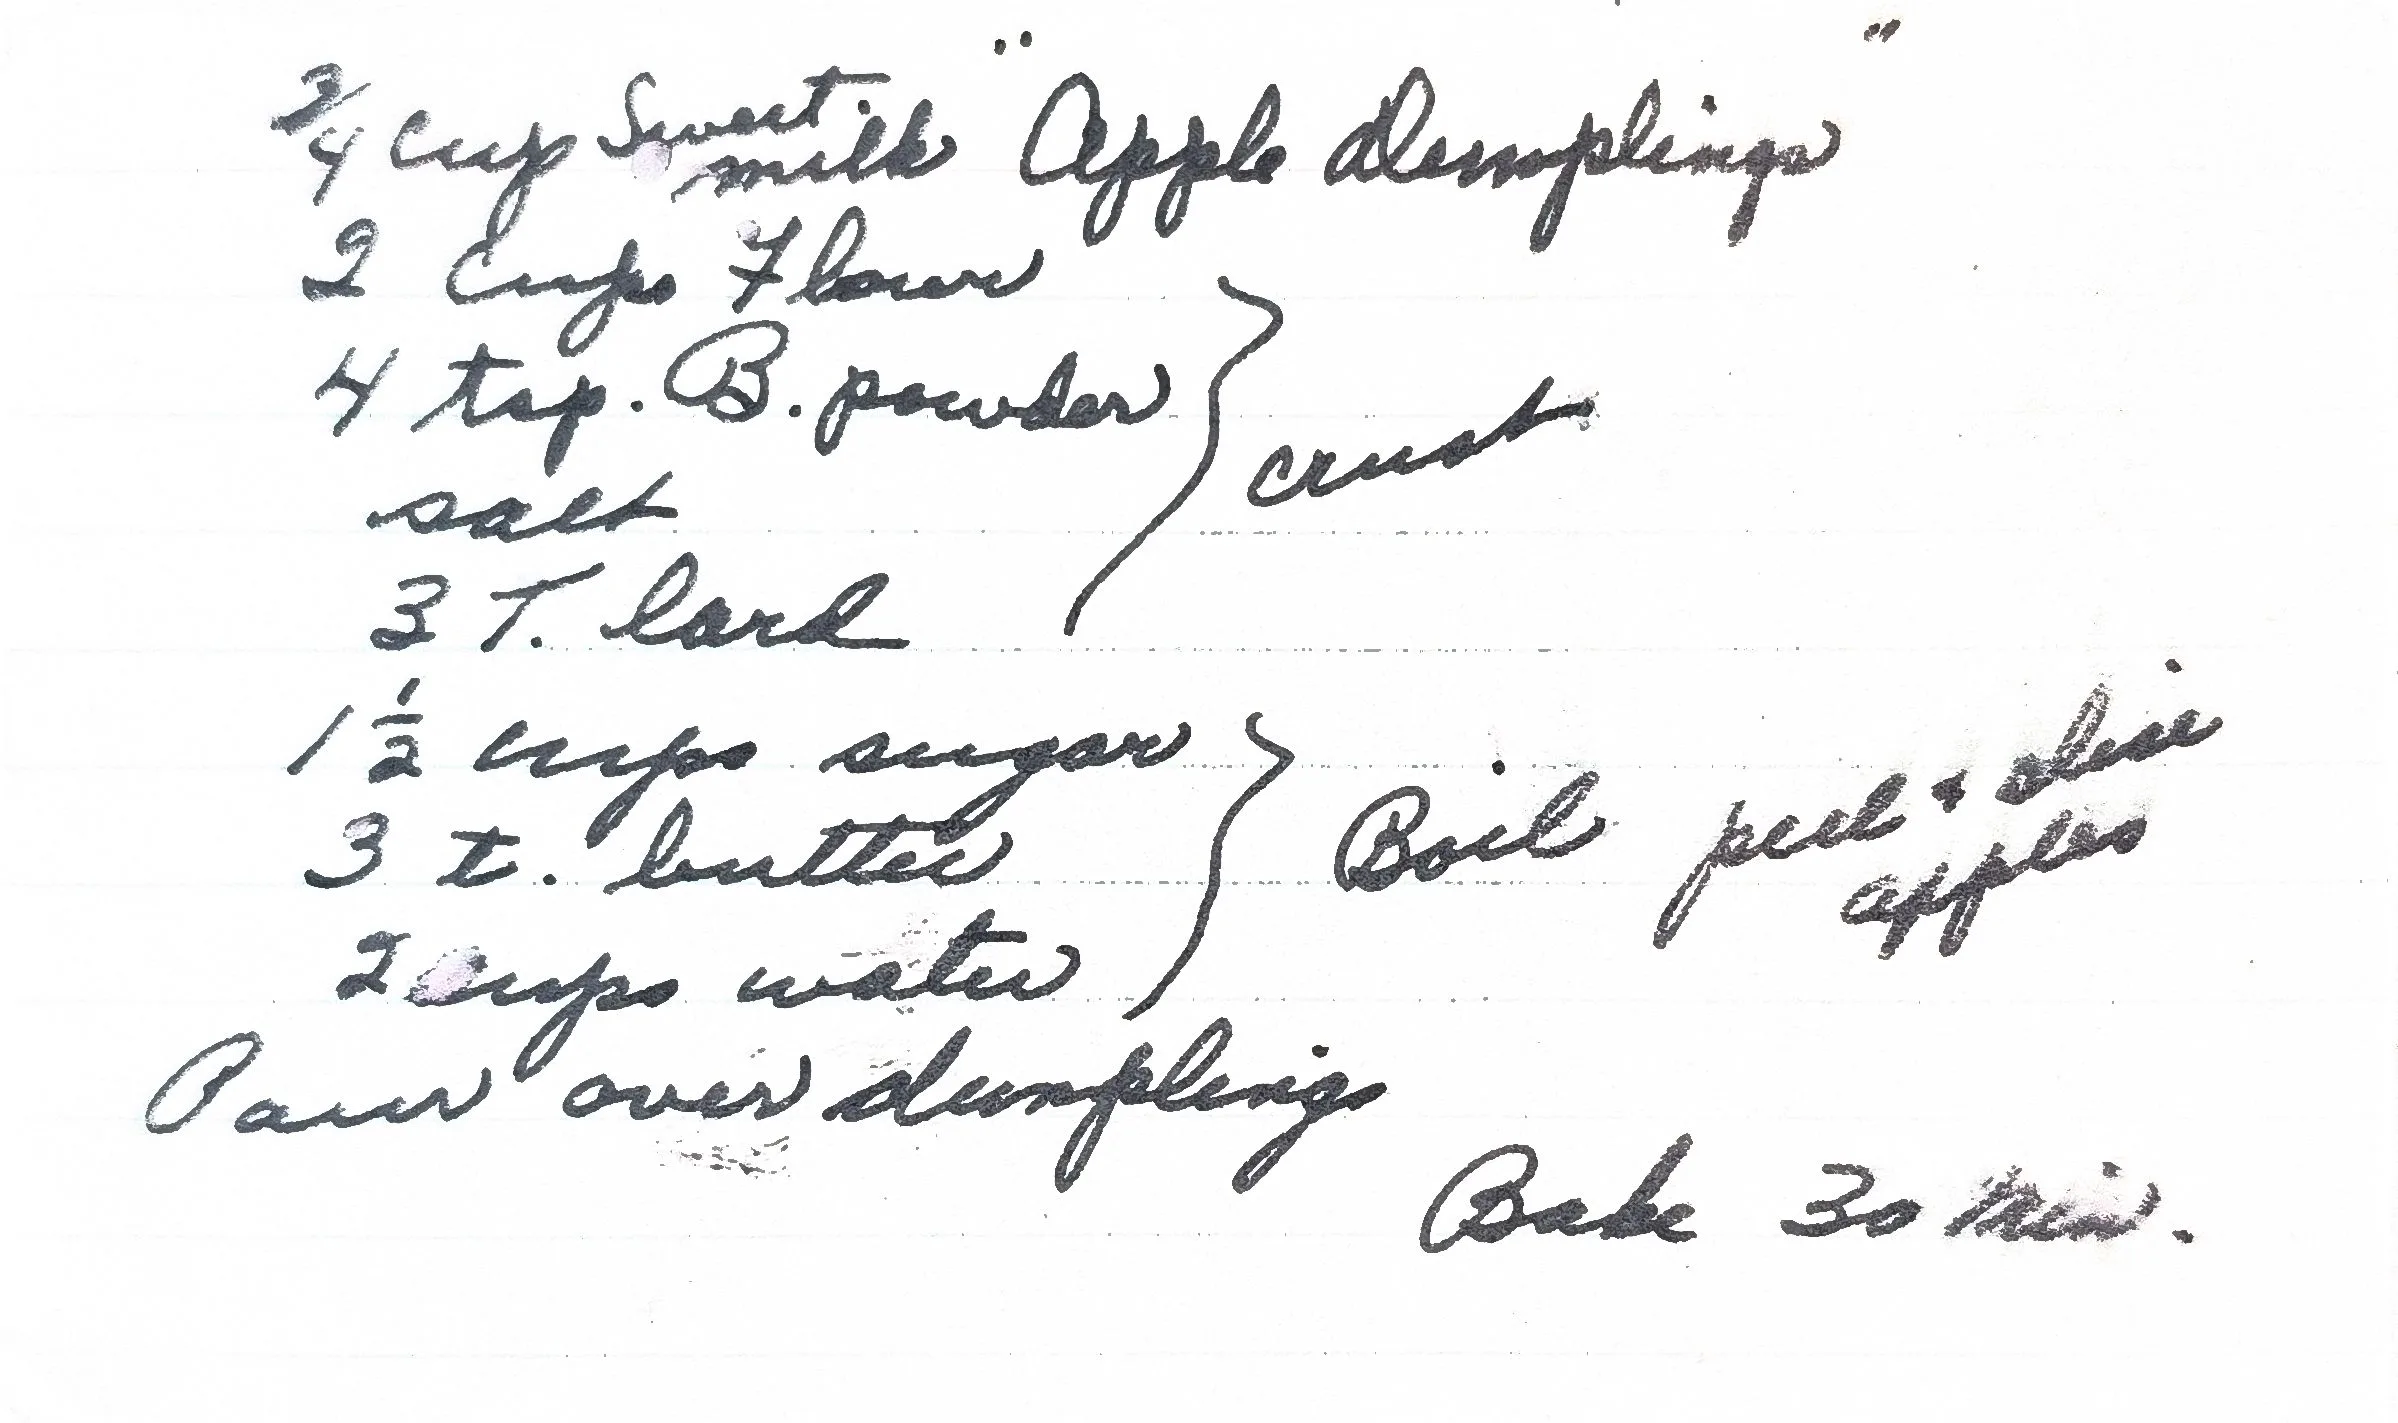 3/4 cup Sweet milk "Apple Dumplings"
2 cups Flour
4 tsp. B. powder
crust
salt
3 T. lard
1 1/2 cups sugar
3 t. butter
Boil peel & dice
apples
2 cups water
Pour over dumplings
Bake 30 Min.